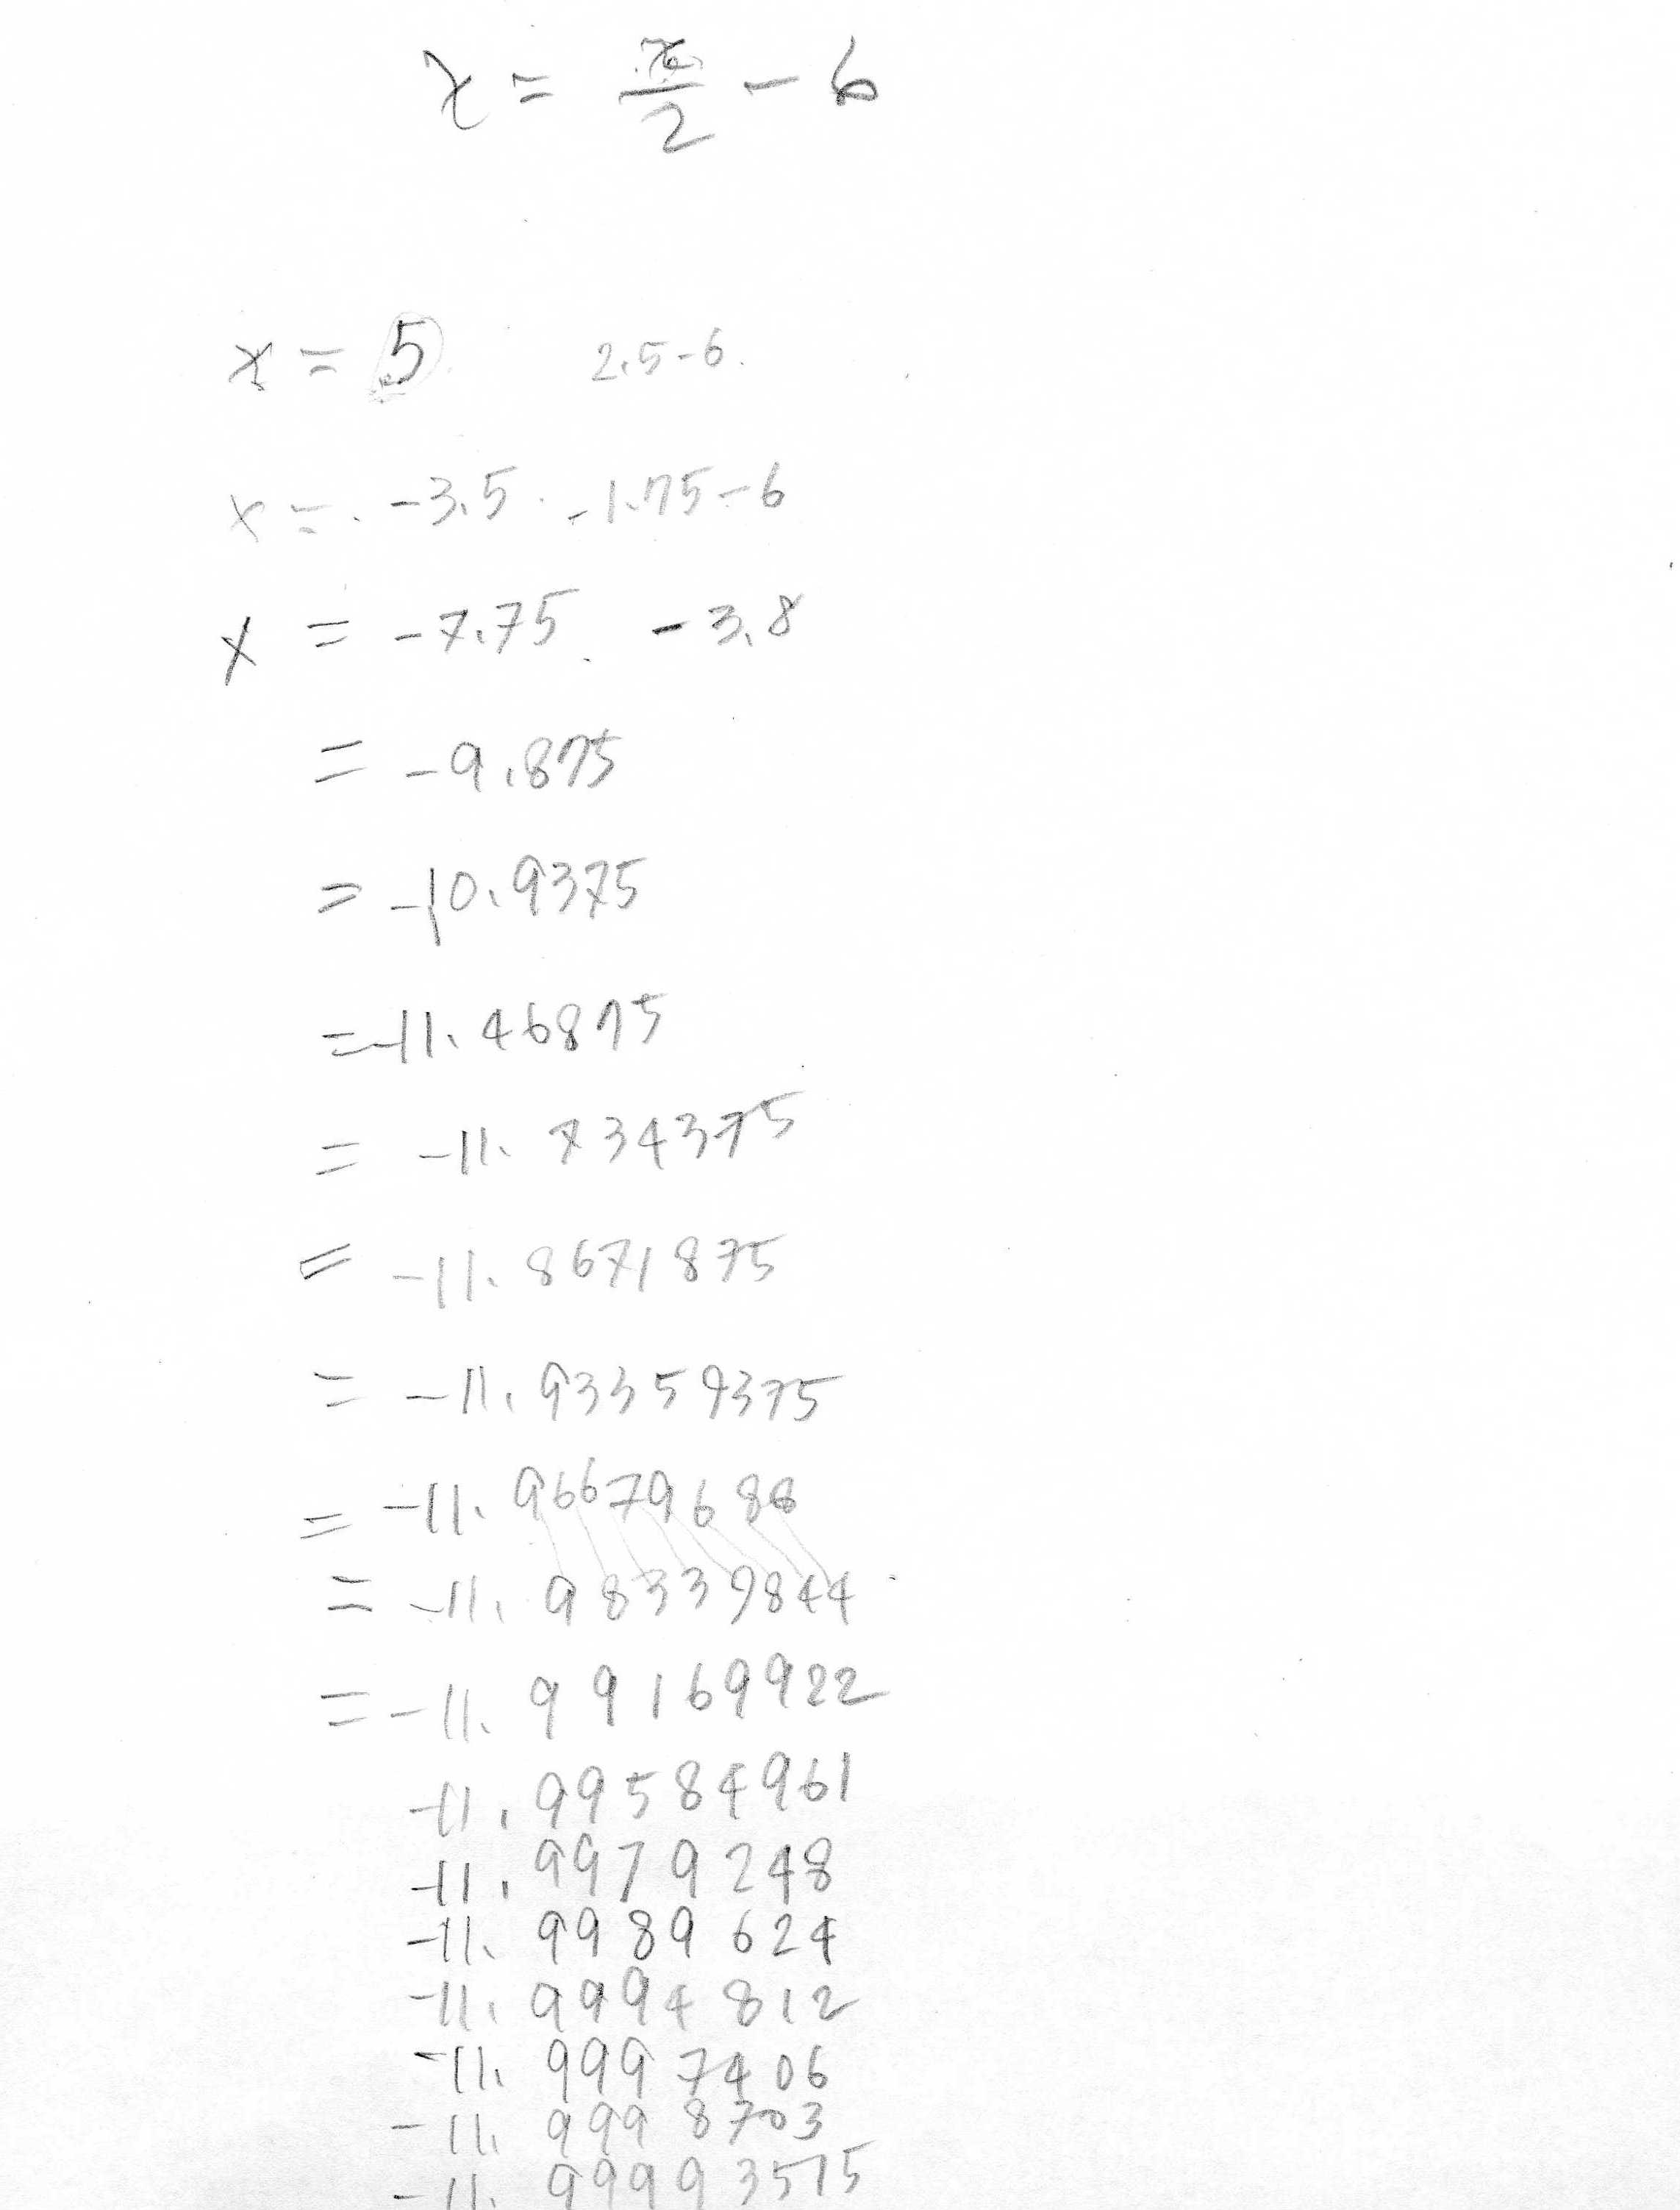 x = x/2 - 6
x = 5 2.5-6.
x = -3.5 -1.75-6
x = -7.75 -3.8
= -9.875
= -10.9375
= -11.46875
= -11.734375
= -11.8671875
= -11.93359375
= -11.96679688
= -11.98339844
= -11.99169922
-11.99584961
-11.9979248
-11.9989624
-11.9994812
-11.9997406
-11.9998703
-11.99993515